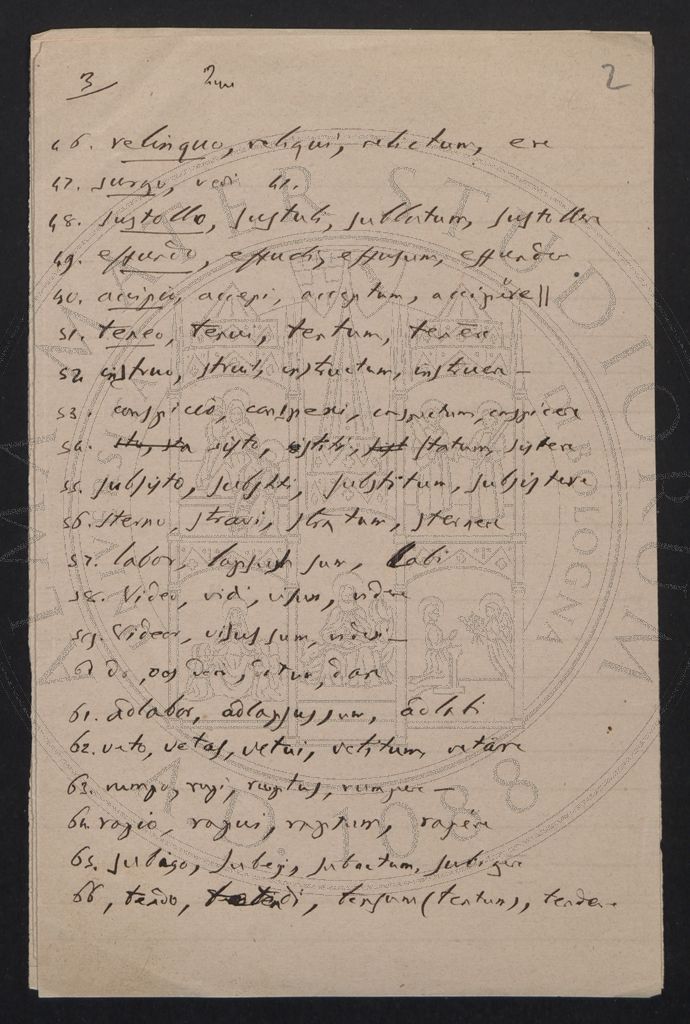 3 2
46. relinquo, reliqui, relictum, ere
47. surgo, vedi 41.
48. sustollo, sustuli, sublatum, sustollere
49. effundo, effudi, effusum, effundere
50. accipio, accepi, acceptum, accipĕre ||
51. teneo, tenui, tentum, tenēre
52. instruo, struxi, instructum, instruere —
53. conspicio, conspexi, conspectum, conspicere
54. sisto, stiti, statum, sistere
55. subsisto, substiti, substitum, subsistere
56. sterno, stravi, stratum, sternere
57. labor, lapsus sum, labi
58. Video, vidi, visum, videre
59. Videor, visus sum, videri —
60 do, das, dedi, datum, dare
61. adlabor, adlapsus sum, adlabi
62. veto, vetas, vetui, vetitum, vetare
63. rumpo, rupi, ruptus, rumpere —
64. rapio, rapui, raptum, rapĕre
65. subigo, subegi, subactum, subigere
66, tendo, tetendi, tensum (tentum), tendere
ALMA MATER STUDIORUM
BOLOGNA
A.D. 1088